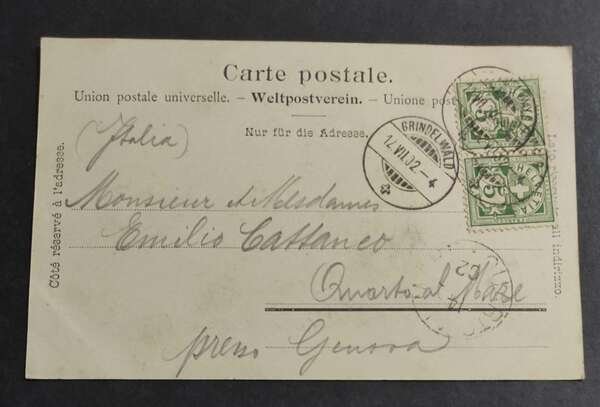 Carte postale.
Union postale universelle. – Weltpostverein. – Unione post
Nur für die Adresse.
(Italia)
GRINDELWALD
12.VII.02-4
5
HELVETIA
5
Côté réservé à l'adresse.
Monsieur et Mesdames
Emilio Cattaneo
Quarto al Mare
presso Genova